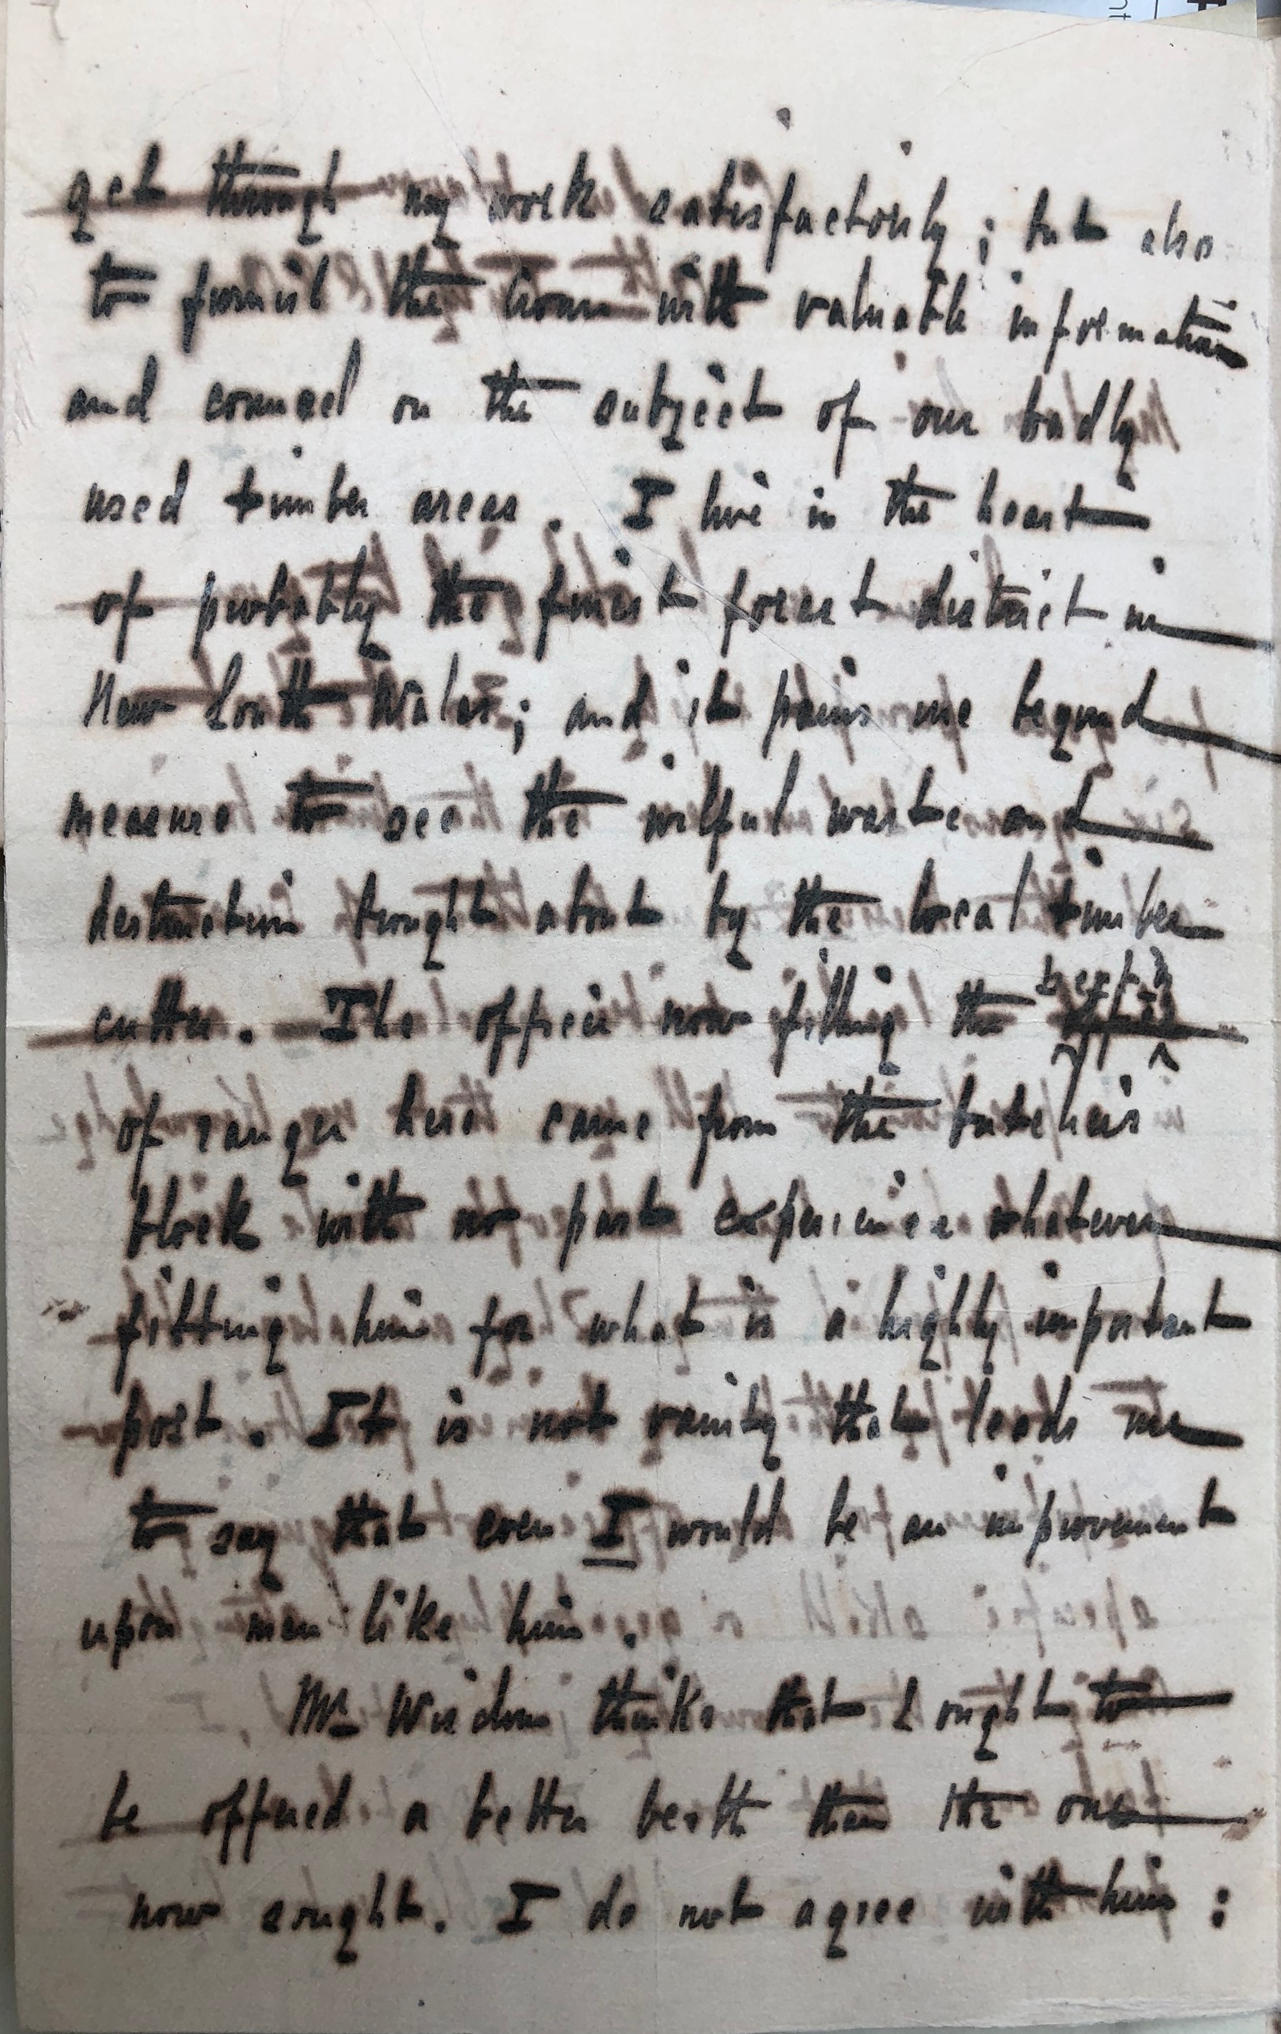 get through my work satisfactorily; but also
to furnish the Crown with valuable information
and counsel on the subject of our badly
used timber areas. I live in the heart
of probably the finest forest district in
New South Wales; and it pains me beyond
measure to see the wilful waste and
destruction brought about by the local timber
cutter. The officer now filling the berth
of ranger here came from the butcher's
block with no past experience whatever
fitting him for what is a highly important
post. It is not vanity that leads me
to say that even I would be an improvement
upon men like him.
Mr Wisdom thinks that I ought to
be offered a better berth than the one
now sought. I do not agree with him: